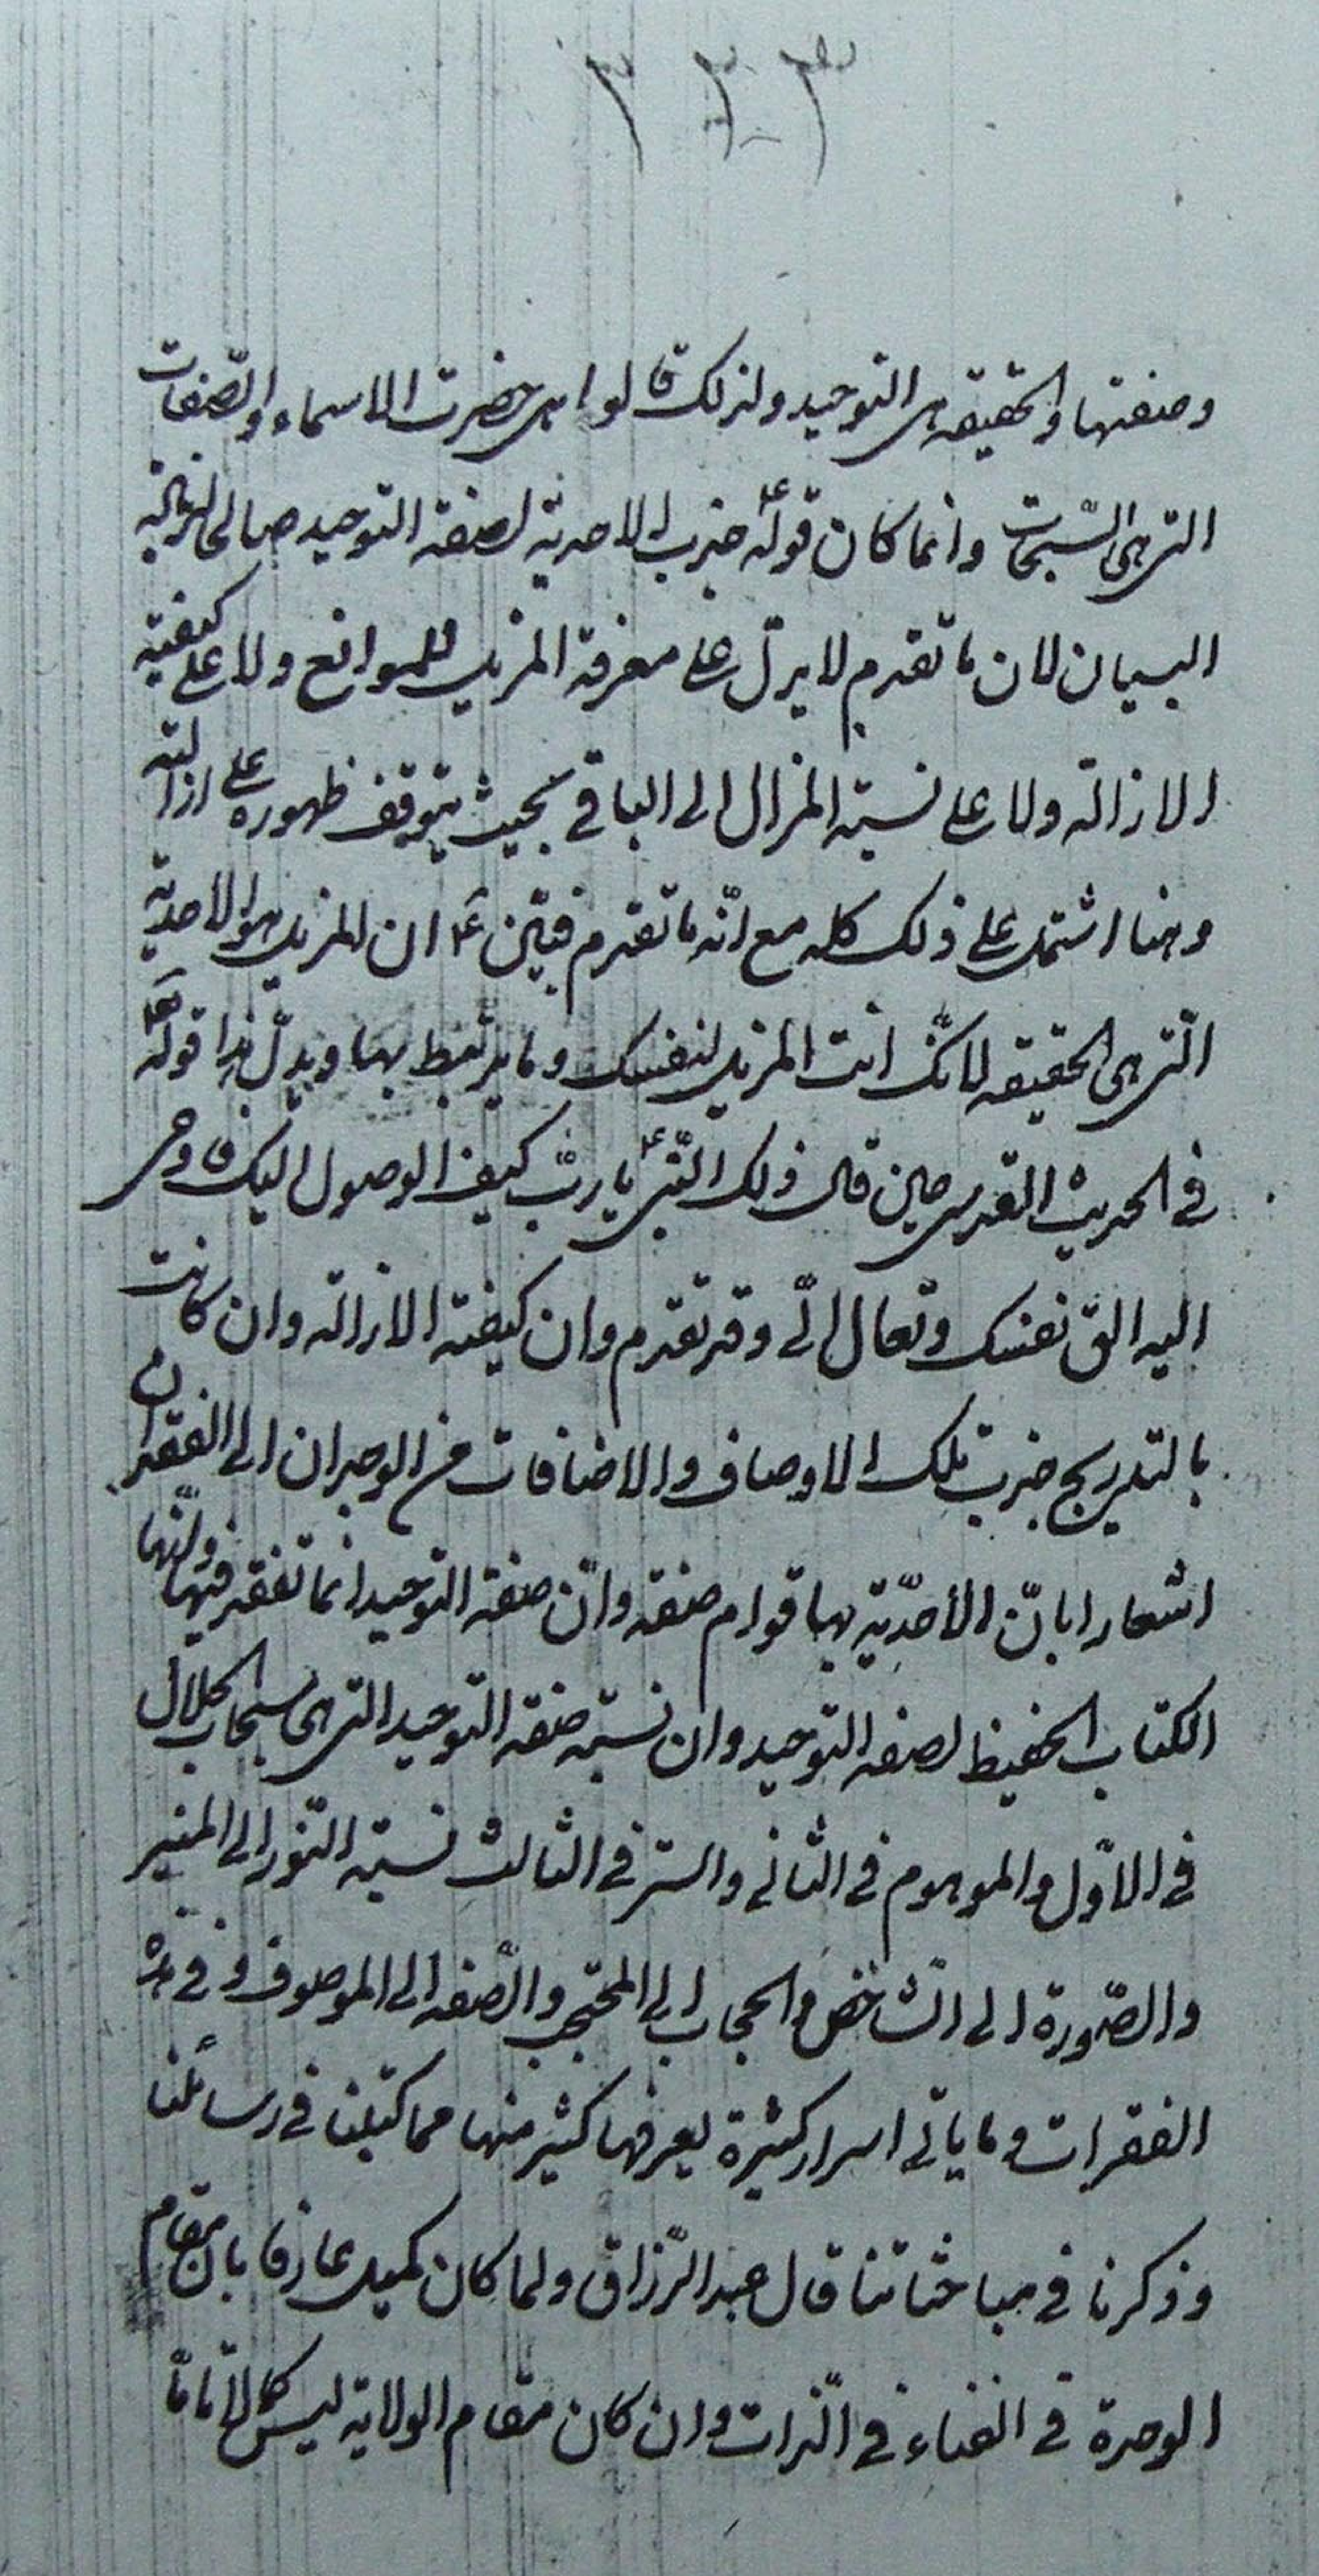 وصفتها والحقيقه هى التوحيد ولذلك قالوا هى حضرت الاسماء والصّفات
التى هى السّبحات وانما كان قوله ع جذب الاحدية لصفة التوحيد صالحا لزيادة
البيان لان ما تقدم لا يدلّ على معرفة المزيل للموانع ولا على كيفية
الازالة ولا على نسبة المزال الى الباقي بحيث يتوقف ظهوره على ازالته
وهنا اشتمل على ذلك كله مع انّه ما تقدم فبيّن ع ان المزيل هو الاحدية
الّتى هى الحقيقه لانّك انت المزيل لنفسك وما يرتبط بها ويدلّ بذا قوله تعا
في الحديث القدسى حين قال ذلك النّبى ع يا ربّ كيف الوصول اليك فاوحى
اليه الق نفسك وتعال الىّ وقد تقدم وان كيفية الازالة وان كانت
بالتدريج جذب تلك الاوصاف والاضافات من الوجدان الى الفقدان
اشعارا بانّ الأحدّية بها قوام صفة وانّ صفة التوحيد انما تفقد فيها ولانّها
الكتاب الحفيظ لصفة التوحيد وان نسبة صفة التوحيد التى هى سبحات الجلال
في الاوّل والموهوم في الثانى والستر في الثالث نسبة النّور الى المنير
والصّورة الى الشاخص والحجاب الى المحتجب والصّفة الى الموصوف وفي هذه
الفقرات وما ياتى اسرار كثيرة يعرفها كثير منها مما كتبنا في رسائلنا
وذكرنا في مباحثاتنا قال عبد الرّزاق ولما كان كميل عارفا بان مقام
الوحدة في الفناء في الّذات وان كان مقام الولاية ليس كمالا تامّا